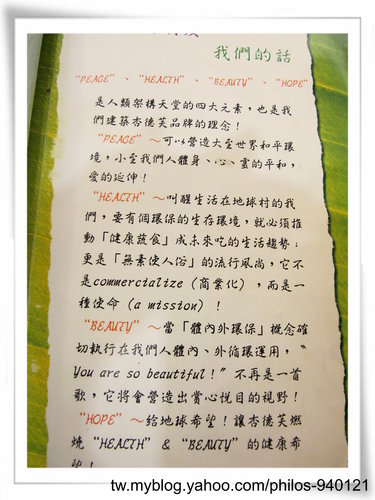 我們的話
"PEACE"、"HEALTH"、"BEAUTY"、"HOPE"
是人類架構天堂的四大元素，也是我
們建築杏德芙品牌的理念！
"PEACE"～可以營造大至世界和平環
境，小至我們人體身、心、靈的平和，
愛的延伸！
"HEALTH"～叫醒生活在地球村的我
們，要有個環保的生存環境，就必須推
動「健康蔬食」成未來吃的生活趨勢；
更是「無素使人俗」的流行風尚，它不
是commercialize（商業化），而是一
種使命（a mission）！
"BEAUTY"～當「體內外環保」概念確
切執行在我們人體內、外循環運用，"
You are so beautiful！"不再是一首
歌，它將會營造出賞心悅目的視野！
"HOPE"～給地球希望！讓杏德芙燃
燒"HEALTH"＆"BEAUTY"的健康希
望！
tw.myblog.yahoo.com/philos-940121